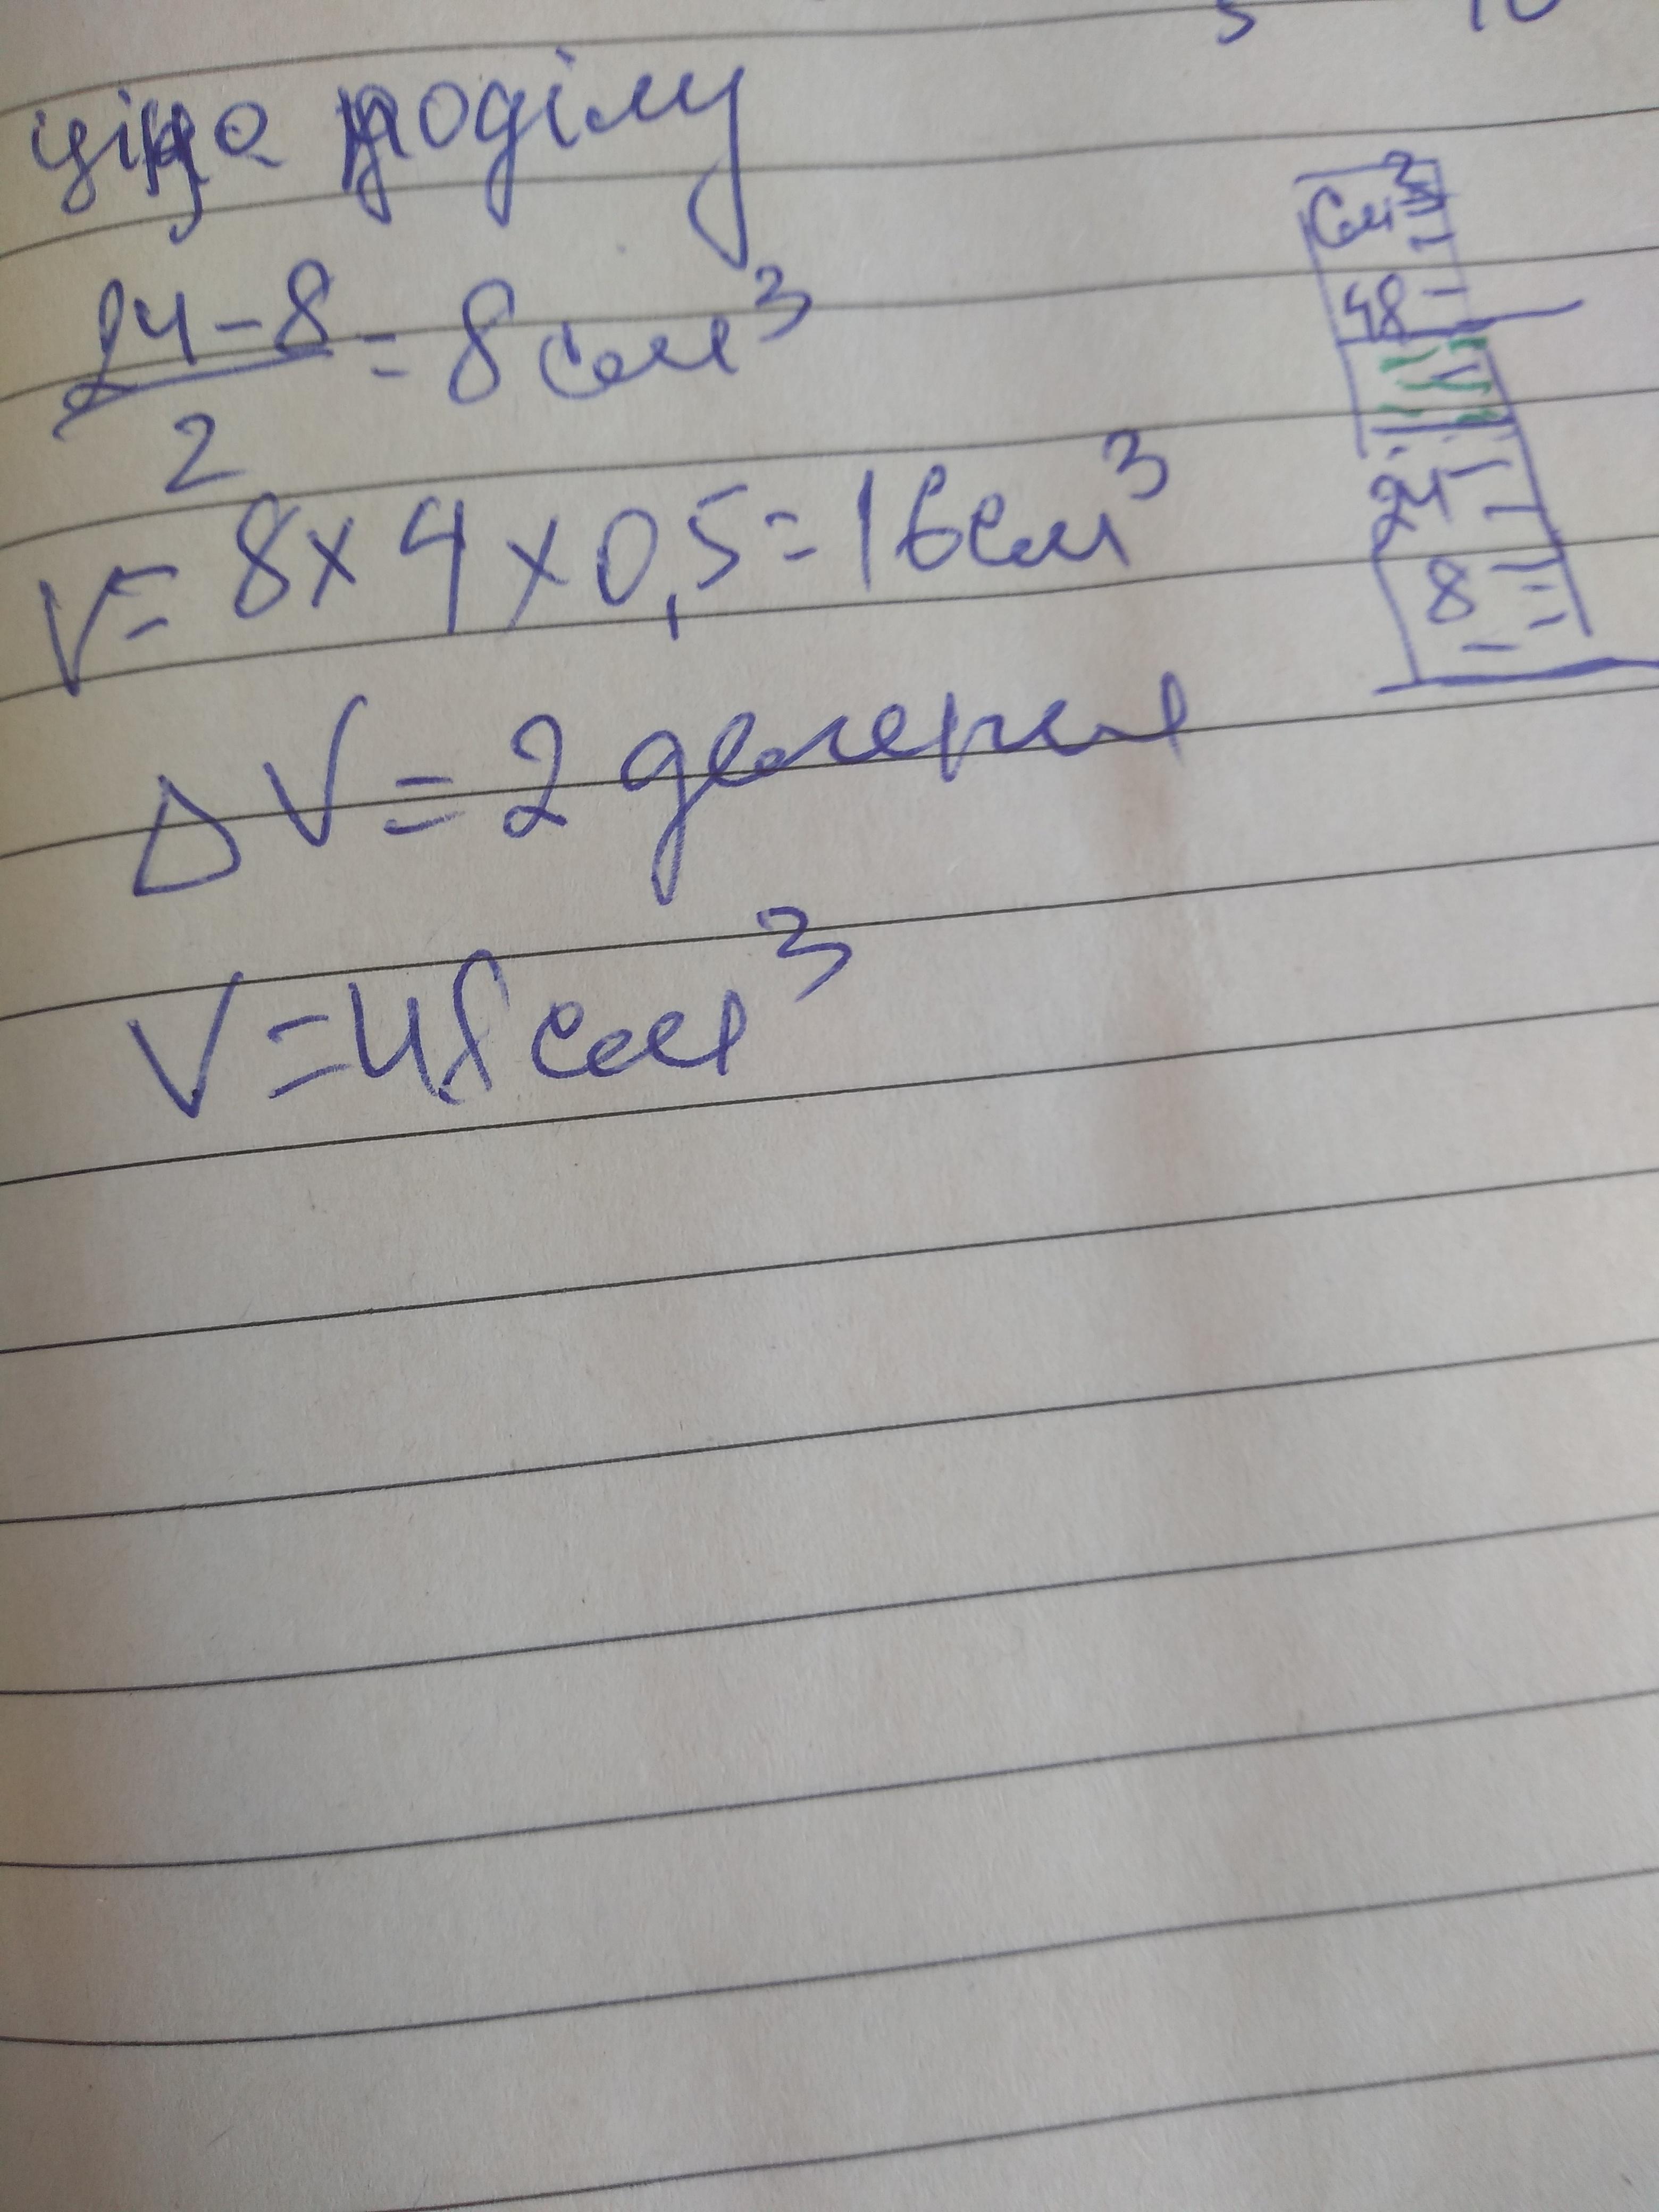 5 10
ціна поділу
24-8
= 8 см³
2
V= 8 x 4 x 0,5 = 16 см³
ΔV = 2
V = 48 см³
см³
48
24
8